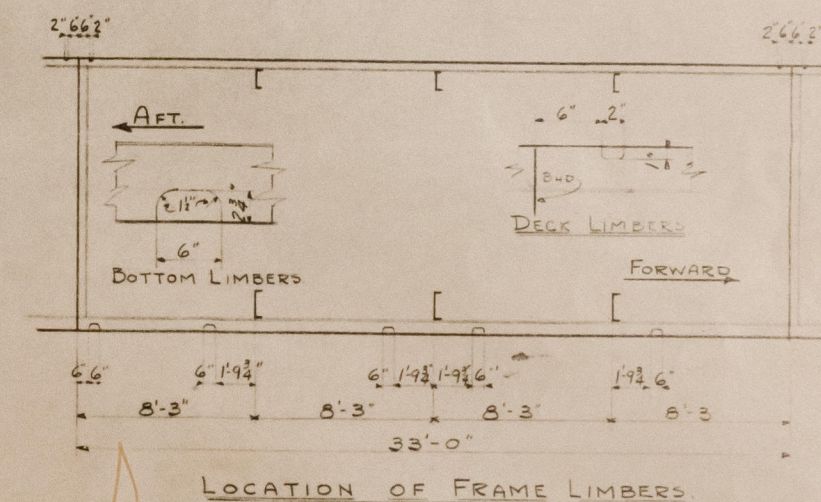 2" 6" 6" 2"
2" 6" 6" 2"
AFT.
6" 2"
1½" 2¾"
BHD
DECK LIMBERS
6"
BOTTOM LIMBERS
FORWARD
6" 6" 6" 1'-9¾" 6" 1'-9¾" 1'-9¾" 6" 1'-9¾ 6"
8'-3" 8'-3" 8'-3" 8'-3
33'-0"
LOCATION OF FRAME LIMBERS.